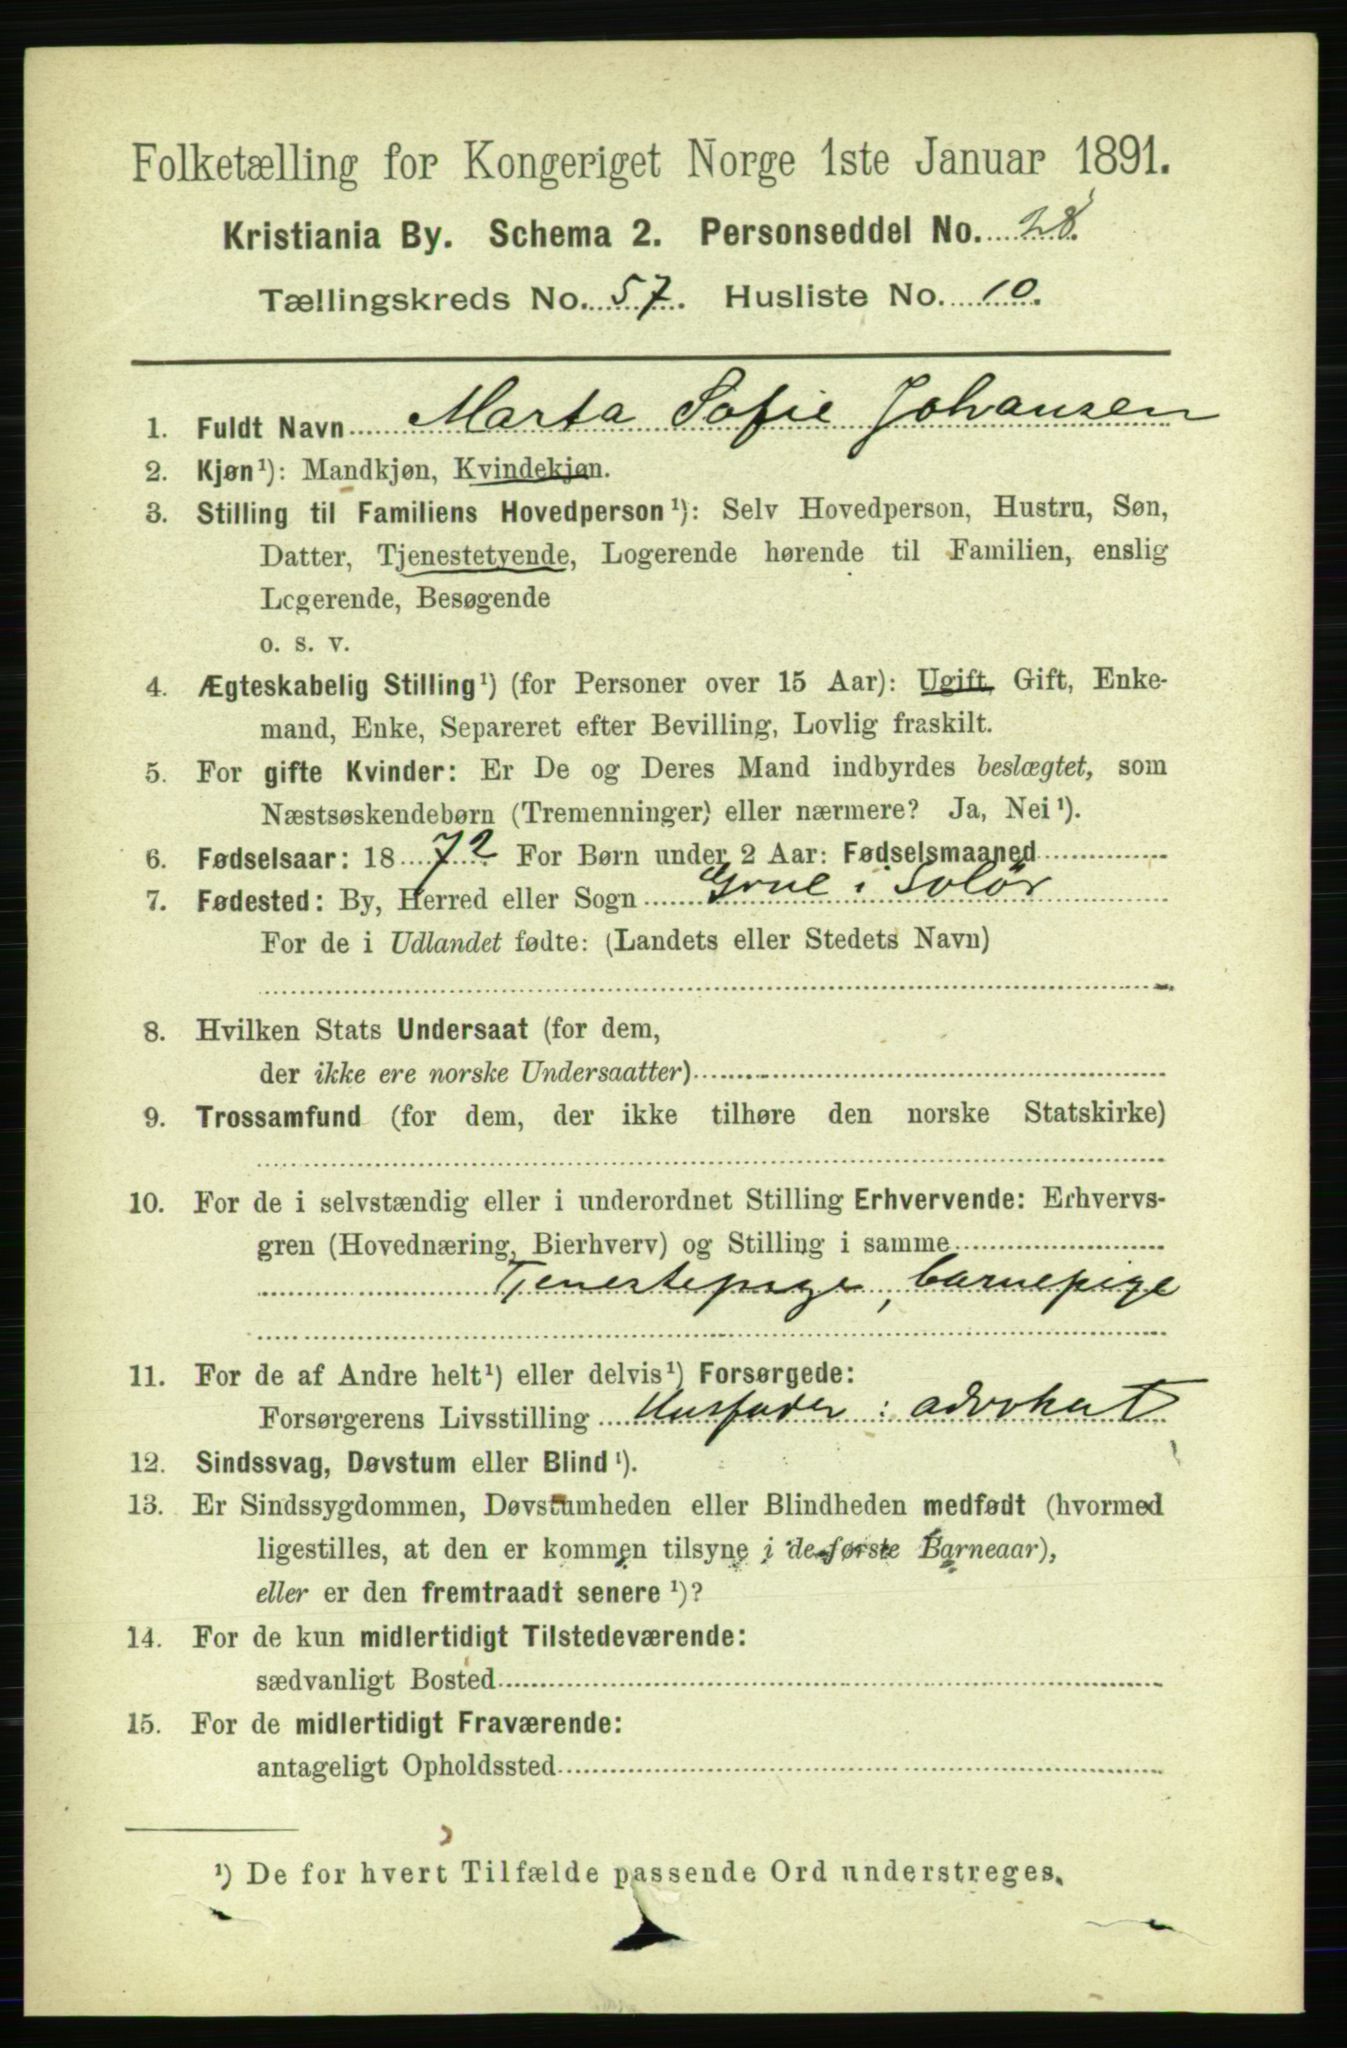 Folketælling for Kongeriget Norge 1ste Januar 1891.
Kristiania By. Schema 2. Personseddel No. 28.
Tællingskreds No. 57. Husliste No. 10.
1. Fuldt Navn Marta Sofie Johansen
2. Kjøn¹): Mandkjøn, Kvindekjøn.
3. Stilling til Familiens Hovedperson¹): Selv Hovedperson, Hustru, Søn,
Datter, Tjenestetyende, Logerende hørende til Familien, enslig
Logerende, Besøgende
o. s. v.
4. Ægteskabelig Stilling¹) (for Personer over 15 Aar): Ugift, Gift, Enke-
mand, Enke, Separeret efter Bevilling, Lovlig fraskilt.
5. For gifte Kvinder: Er De og Deres Mand indbyrdes beslægtet, som
Næstsøskendebørn (Tremenninger) eller nærmere? Ja, Nei¹).
6. Fødselsaar: 1872 For Børn under 2 Aar: Fødselsmaaned
7. Fødested: By, Herred eller Sogn Grue i Solør
For de i Udlandet fødte: (Landets eller Stedets Navn)
8. Hvilken Stats Undersaat (for dem,
der ikke ere norske Undersaatter)
9. Trossamfund (for dem, der ikke tilhøre den norske Statskirke)
10. For de i selvstændig eller i underordnet Stilling Erhvervende: Erhvervs-
gren (Hovednæring, Bierhverv) og Stilling i samme
Tjenestepige, barnepige
11. For de af Andre helt¹) eller delvis¹) Forsørgede:
Forsørgerens Livsstilling Husfader: advokat
12. Sindssvag, Døvstum eller Blind¹).
13. Er Sindssygdommen, Døvstumheden eller Blindheden medfødt (hvormed
ligestilles, at den er kommen tilsyne i de første Barneaar),
eller er den fremtraadt senere¹)?
14. For de kun midlertidigt Tilstedeværende:
sædvanligt Bosted
15. For de midlertidigt Fraværende:
antageligt Opholdssted
¹) De for hvert Tilfælde passende Ord understreges.